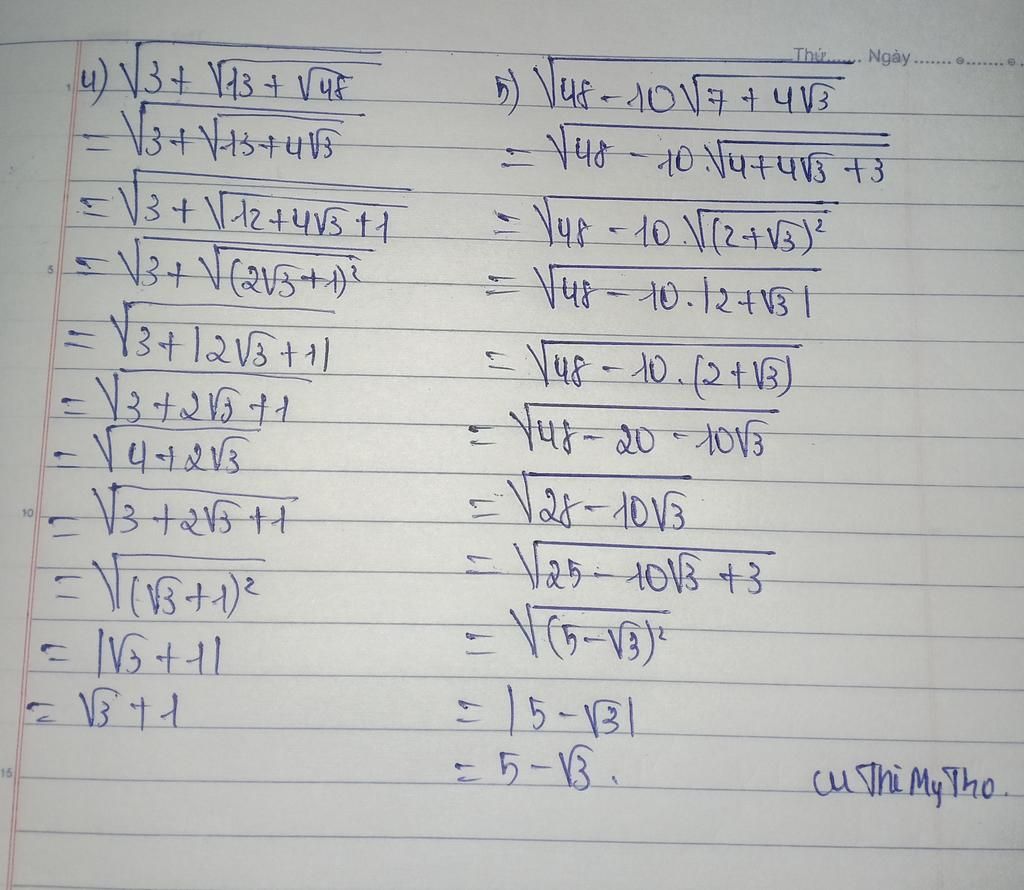 Thứ...... Ngày ....... ..........
4) √(3 + √(13 + √48))
= √(3 + √(13 + 4√3))
= √(3 + √(12 + 4√3 + 1))
= √(3 + √((2√3 + 1)²))
= √(3 + |2√3 + 1|)
= √(3 + 2√3 + 1)
= √(4 + 2√3)
= √(3 + 2√3 + 1)
= √((√3 + 1)²)
= |√3 + 1|
= √3 + 1
5) √(48 - 10√(7 + 4√3))
= √(48 - 10.√(4 + 4√3 + 3))
= √(48 - 10.√((2 + √3)²))
= √(48 - 10.|2 + √3|)
= √(48 - 10.(2 + √3))
= √(48 - 20 - 10√3)
= √(28 - 10√3)
= √(25 - 10√3 + 3)
= √((5 - √3)²)
= |5 - √3|
= 5 - √3.
5
10
15
Thi My Tho.